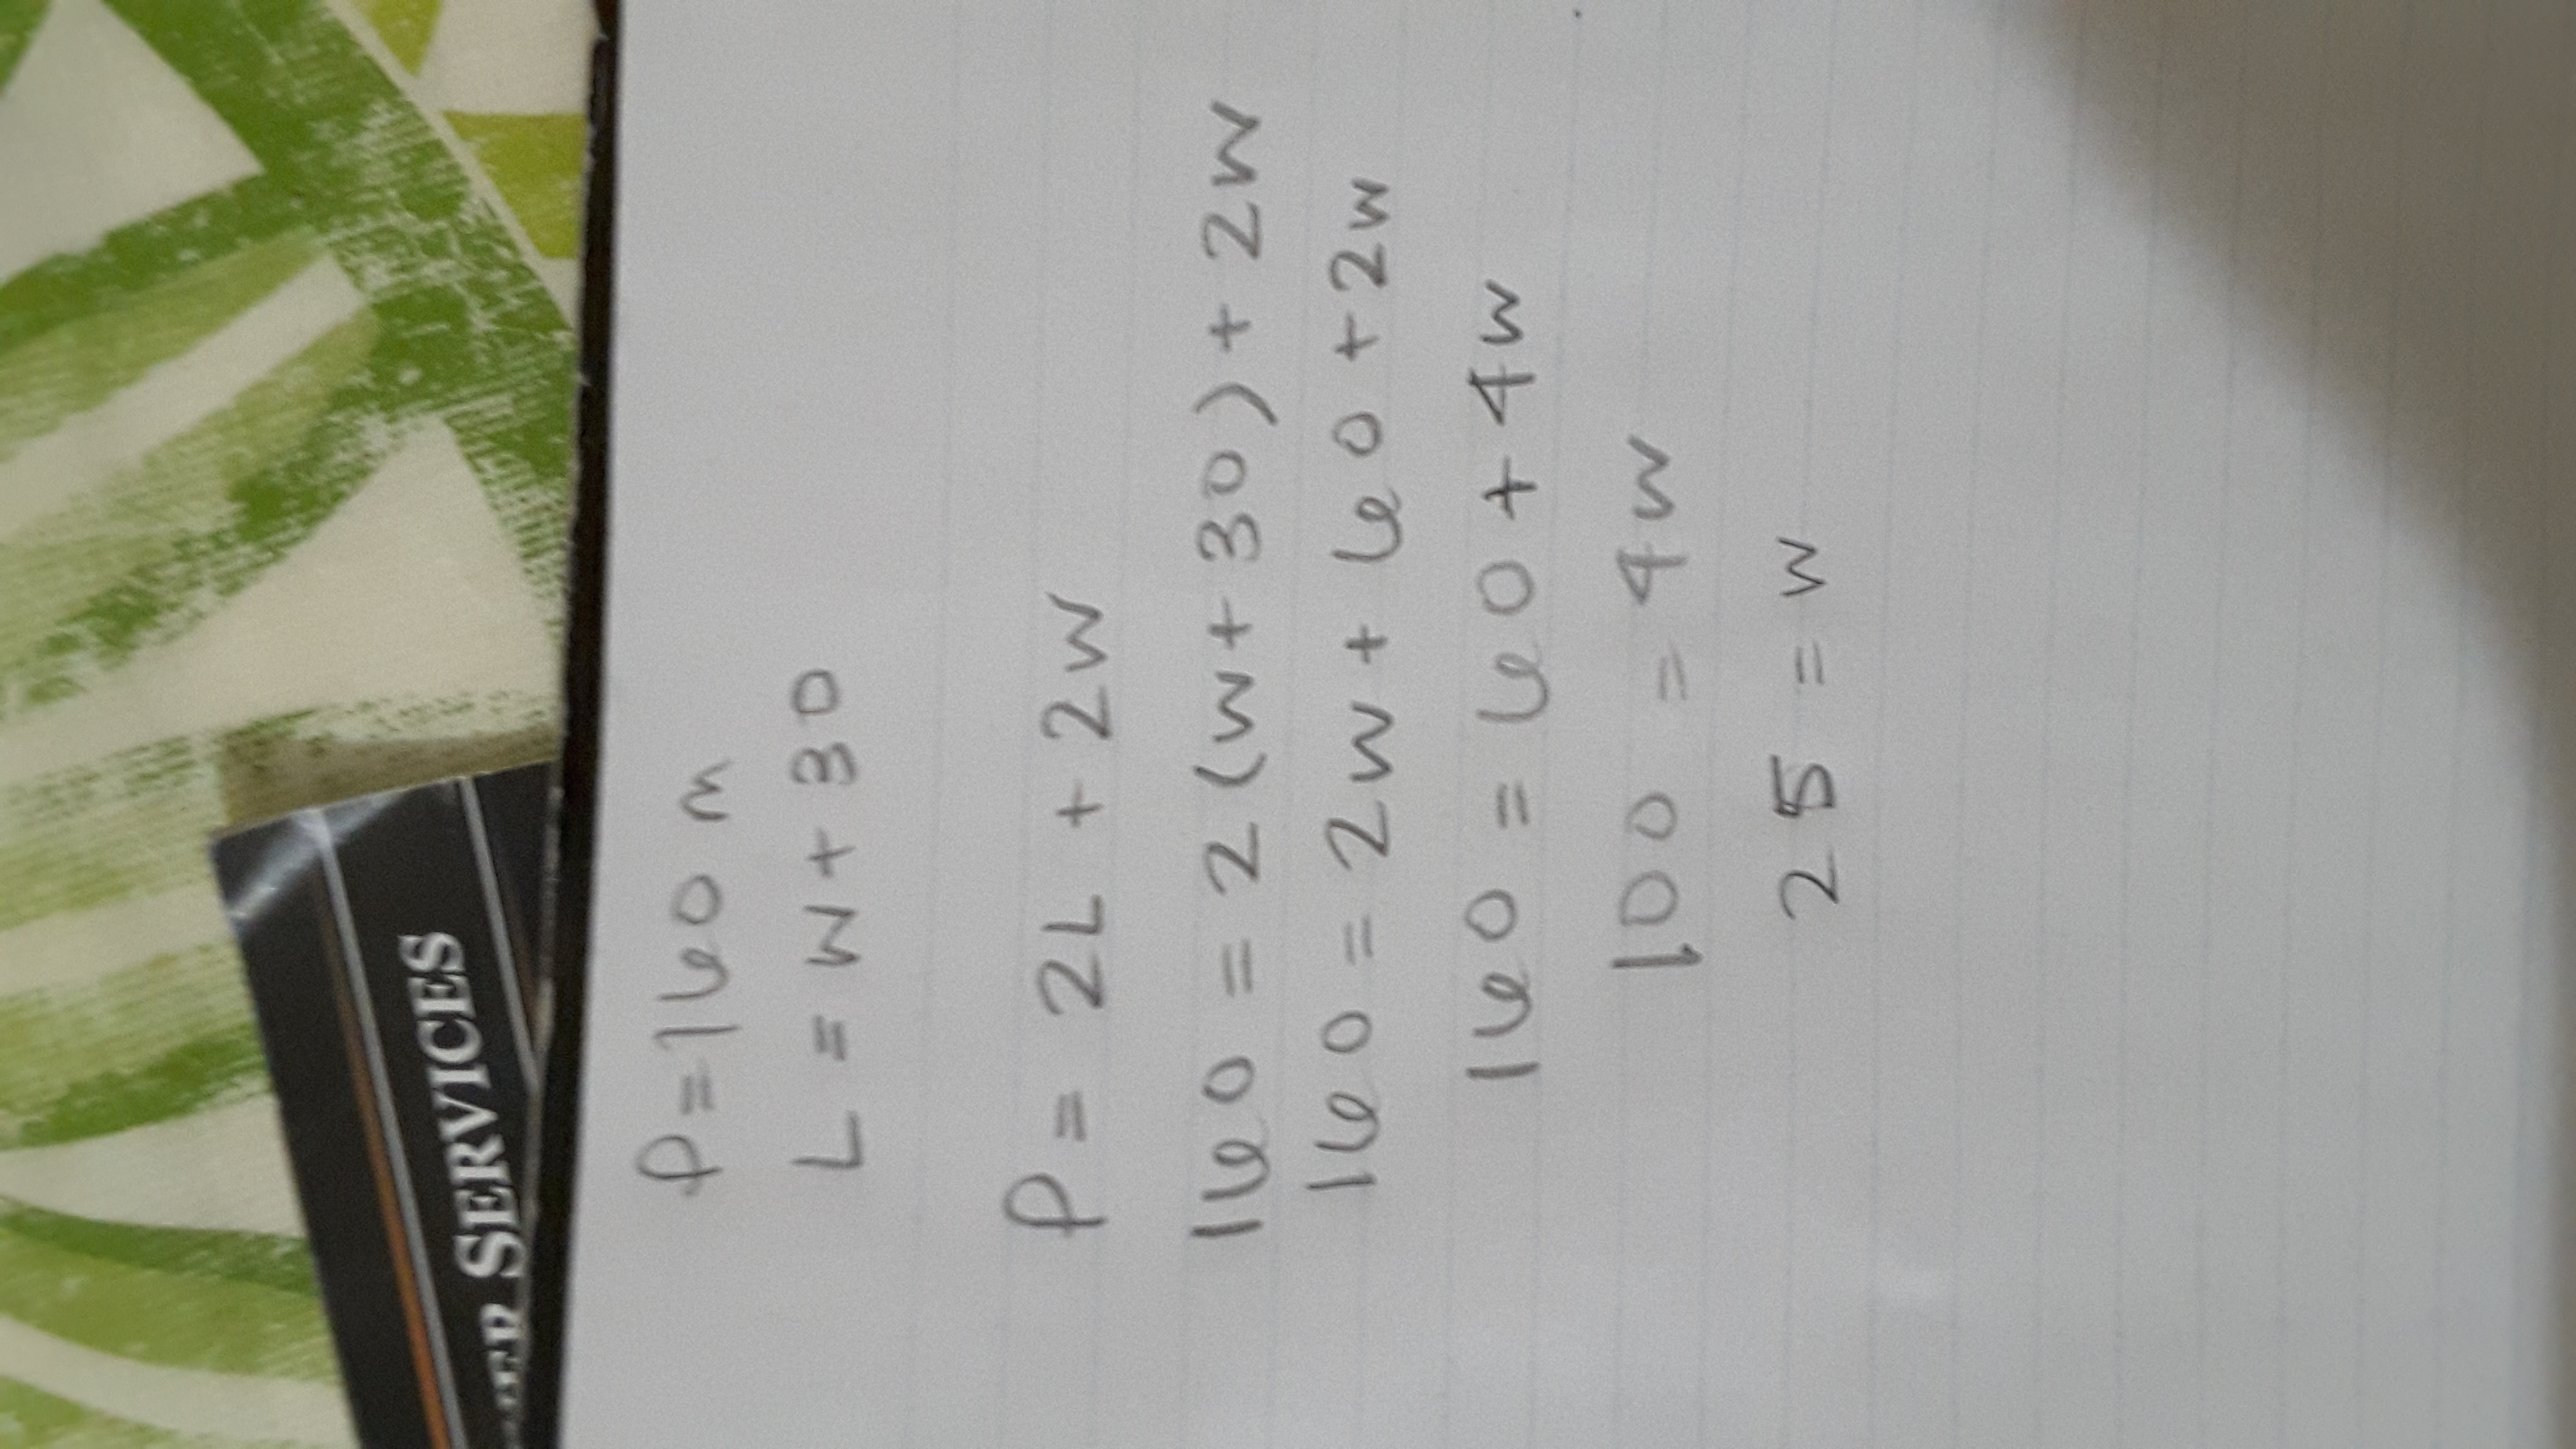 SERVICES
P = 160 m
L = W + 30
P = 2L + 2W
160 = 2(W + 30) + 2W
160 = 2W + 60 + 2W
160 = 60 + 4W
100 = 4W
25 = W